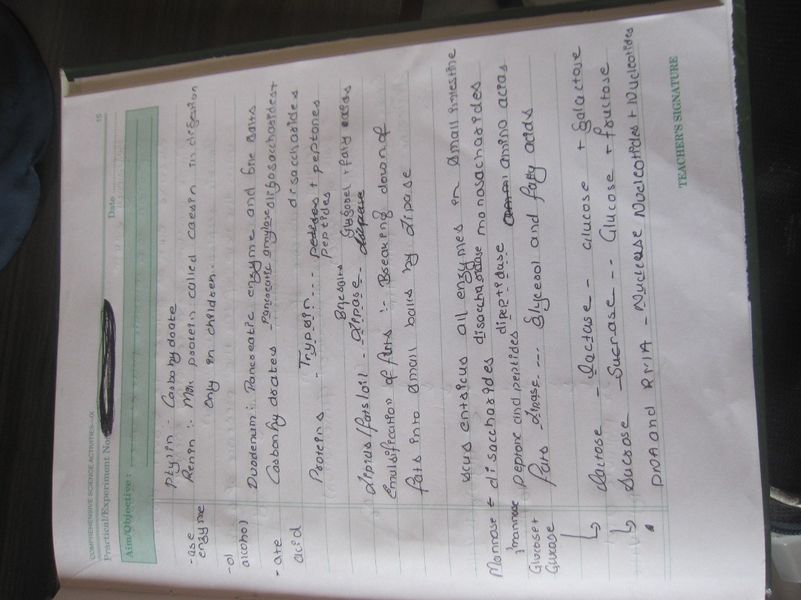 COMPREHENSIVE SCIENCE ACTIVITIES—IX
15
Practical/Experiment No
Date
Aim/Objective :
-ase
enzyme
-ol
alcohol
-ate
acid
Ptylin :- Carbohydrate
Renin :- Milk protein called caesin in digestion
only in children.
Duodenum :- Pancreatic enzyme and bile salts
Carbonhydrates Pancreatic amylase oligosaccharides +
disaccharides
Proteins - Trypsin ... peptones
Peptides
Bilesalts
Lipids/fats/oil .. Lipase - + fatty acids
Emulsification of fats :- Breaking down of
fats into small balls by Lipase
ucus entericus all enzymes in small intestine
Mannose + disaccharides disaccharidase monosacharides
mannose Peptone and peptides dipeptidase amino acids
Glucose + Fats Lipase ... Glycerol and fatty acids
Glucose
↳ Lactose - Lactase - Glucose + Galactose
↳ Sucrose - Sucrase -- Glucose + fructose
DNA and RNA - Nuclease Nucleotides + Nucleotides
TEACHER'S SIGNATURE